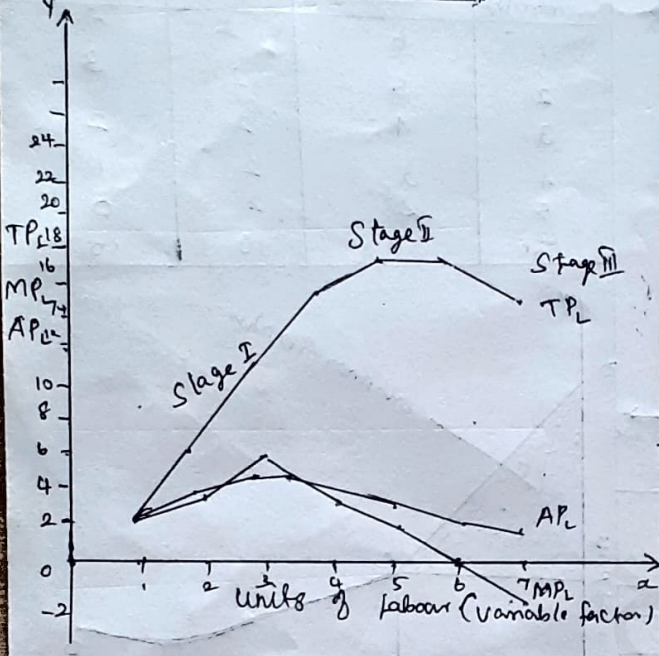 Y
24
22
20
TPL 18
16
MPL
APL 12
10
8
6
4
2
0
-2
Stage I
Stage II
Stage III
TPL
APL
MPL
1 2 3 4 5 6 7
x
units of labour (variable factor)